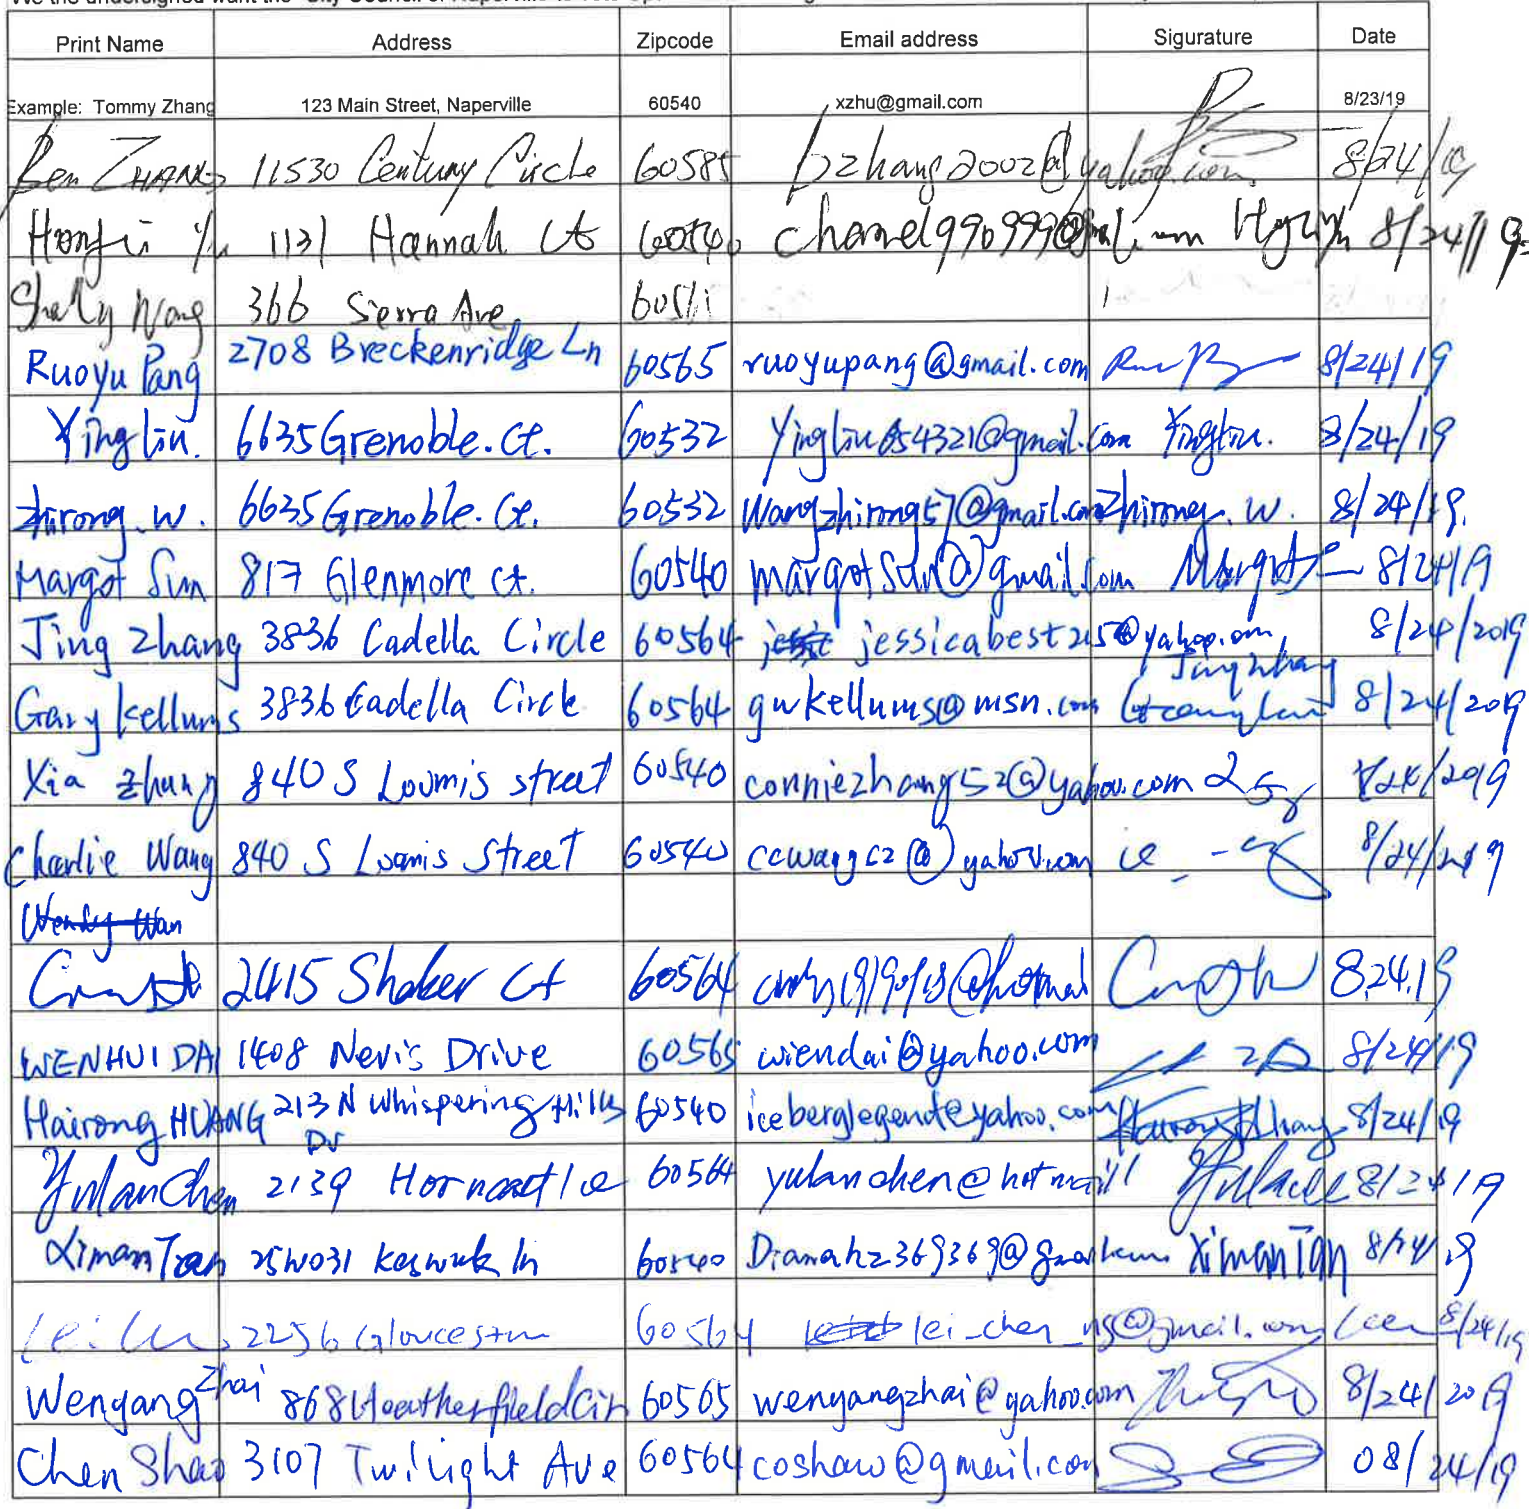 We the undersigned want the City Council of Naperville to vote
Print Name Address Zipcode Email address Sigurature Date
Example: Tommy Zhang 123 Main Street, Naperville 60540 xzhu@gmail.com 8/23/19
Ben ZHANG 11530 Century Circle 60585 bzhang2002@yahoo.com 8/24/19
Yu 1131 Hannah Ct 60540 8/24/19
Wang 366 Sierra Ave
Ruoyu Pang 2708 Breckenridge Ln 60565 ruoyupang@gmail.com 8/24/19
Ying Liu. 6635 Grenoble. Ct. 60532 Yingliu654321@gmail.com Yingliu. 8/24/19
Zhirong. W. 6635 Grenoble. Ct. 60532 Wangzhirong57@gmail.com Zhirong. W. 8/24/19.
Margot Sun 817 Glenmore Ct. 60540 margotsun@gmail.com Margot 8/24/19
Jing Zhang 3836 Cadella Circle 60564 jessicabest215@yahoo.com 8/24/2019
Jing Zhang
Gary Kellums 3836 Cadella Circle 60564 gwkellums@msn.com 8/24/2019
Xia Zhang 840 S Loomis street 60540 conniezhang52@yahoo.com 8/24/2019
Charlie Wang 840 S Loomis Street 60540 ccwang62@yahoo.com 8/24/2019
Wendy Wan
2415 Shaker Ct 60564 8.24.19
WENHUI DAI 1408 Nevis Drive 60565 wiendai@yahoo.com 8/24/19
Hairong HUANG 213 N Whispering Hills 60540 iceberglegent@yahoo.com 8/24/19
Dr
Yulan Chen 2139 Horncastle 60564 yulanchen@hotmail 8/24/19
Ximan Tan 25W031 Keswick ln 60540 Dianahz369369@gmail.com Ximan Tan 8/24/19
2256 Gloucester 60564 lei_chen_ng@gmail.com 8/24/19
Wenyang Zhai 868 Heatherfield Cir 60565 wenyangzhai@yahoo.com 8/24/2019
Chen Shao 3107 Twilight Ave 60564 coshaw@gmail.com 08/24/19